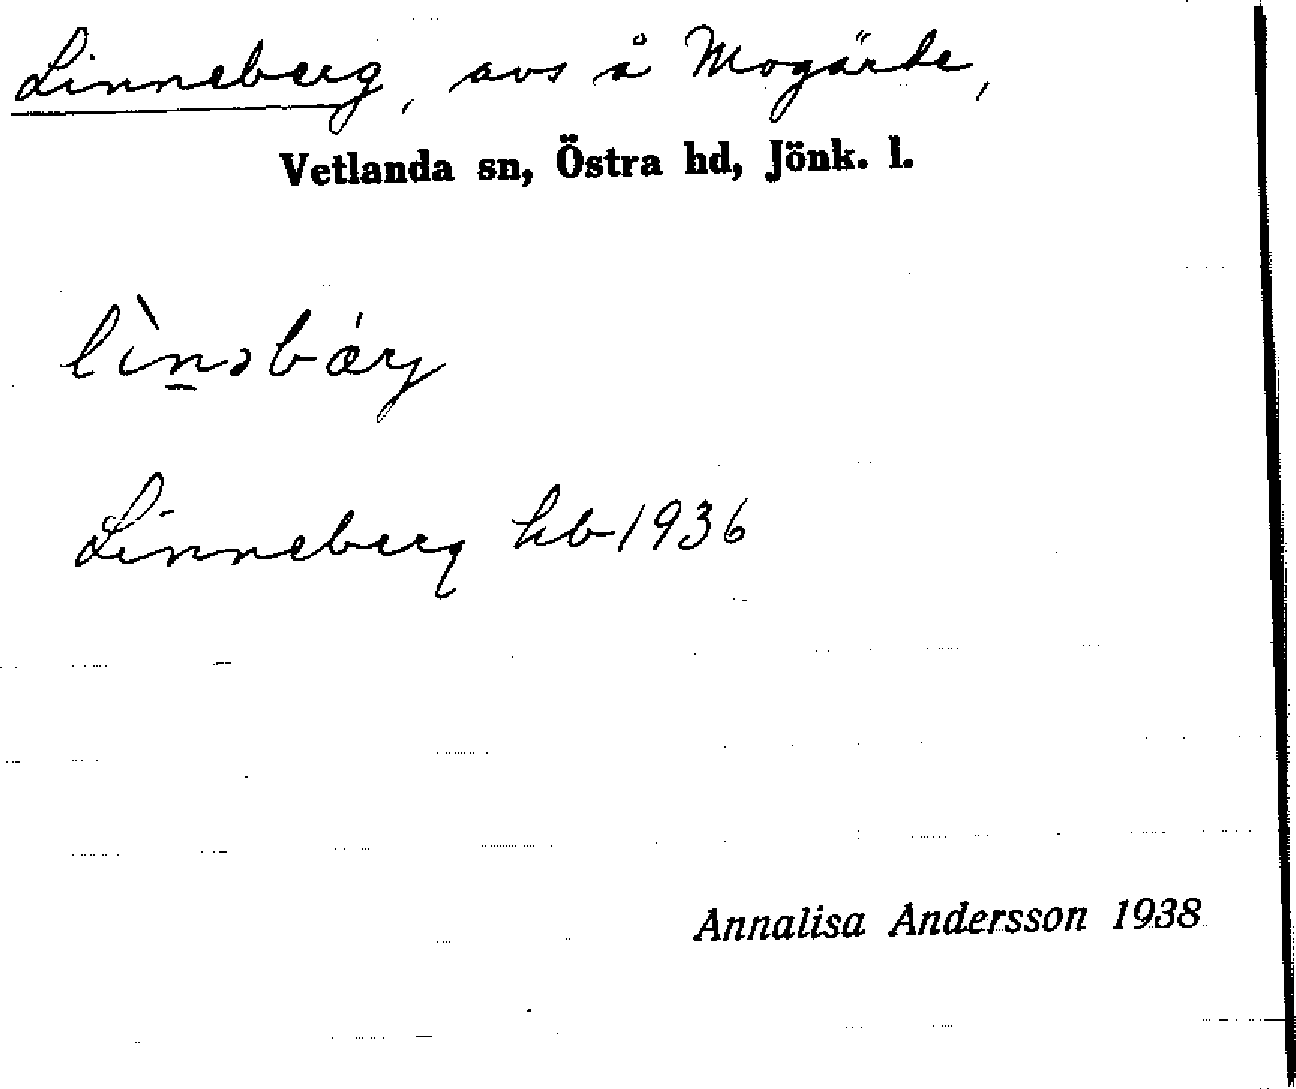 Linneberg, avs å Mogärde,
Vetlanda sn, Östra hd, Jönk. l.
lìn̲əbáry
Linneberg hb 1936
Annalisa Andersson 1938